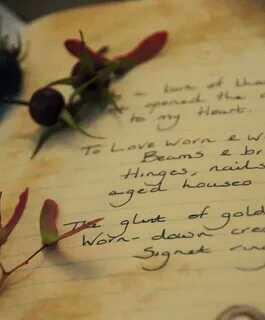 a burst of tha
opened the d
to my Heart.
To Love Worn & W
Beams & br
Hinges, nails
aged houses
The glut of gold
Worn-down cre
Signet rin